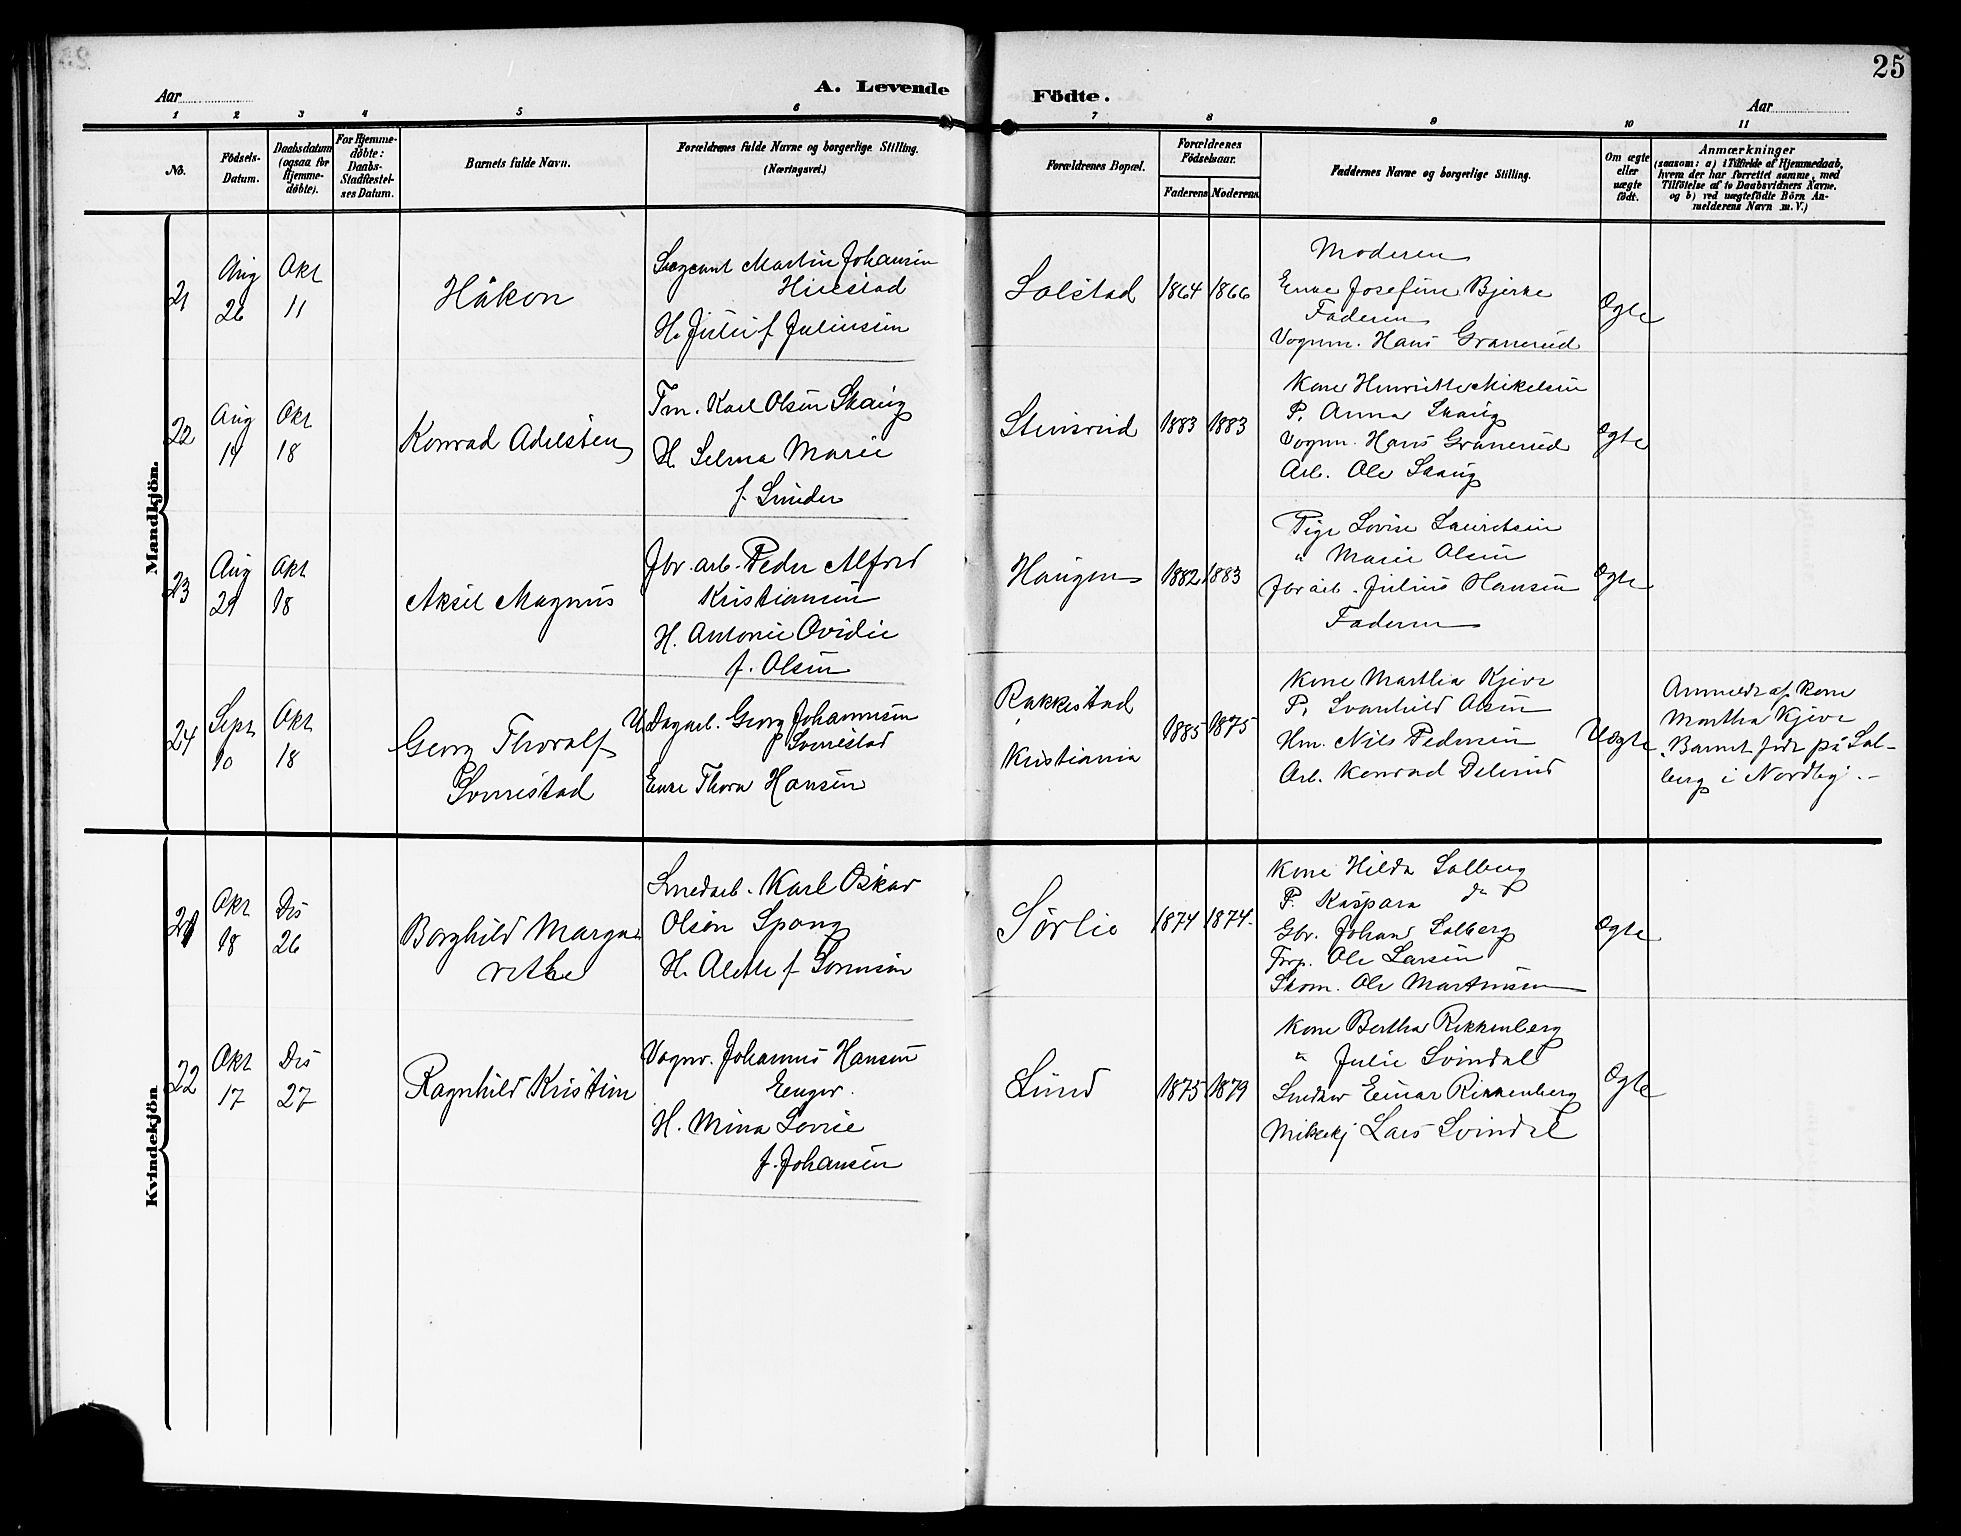 25
A. Levende Födte.
Aar
Aar
1 2 3 4 5 6 7 8 9 10 11
No.
Födsels-
Datum.
Daabsdatum
(ogsaa for
Hjemme-
döbte).
For Hjemme-
döbte:
Daabs-
Stadfæstel-
ses Datum.
Barnets fulde Navn.
Forældrenes fulde Navne og borgerlige Stilling.
(Næringsvei.)
Forældrenes Bopæl.
Forældrenes
Födselsaar.
Faderens Moderens
Faddernes Navne og borgerlige Stilling.
Om ægte
eller
uægte
født.
Anmærkninger
(saasom: a) i Tilfælde af Hjemmedaab,
hvem der har forrettet samme, med
Tilföielse af to Daabsvidners Navne.
og b) ved uægtefödte Börn An-
melderens Navn m. V.)
Mandkjön.
21
Aug
26
Okt
11
Håkon
Sergeant Martin Johansen
H. Julie f. Juliussen
Solstad
1864 1866
Moderen
Enke Josefine Bjerke
Faderen
Vognm. Hans Granerud
Ægte
22
Aug
14
Okt
18
Konrad Adelsten
Tm. Karl Olsen Skaug
H. Selma Marie
f. Smeder
Stensrud
1883 1883
Kone Henriette Mikelsen
P. Anna Skaug
Vognm. Hans Granerud
Arb. Ole Skaug
Ægte
23
Aug
29
Okt
18
Aksel Magnus
Jbr. arb. Peder Alfred
Kristiansen
H. Antonie Ovidie
f. Olsen
Haugen
1882 1883
Pige Lovise Lauritsen
" Marie Olsen
Jbr arb. Julius Hansen
Faderen
Ægte
24
Sept
10
Okt
18
Georg Thoralf
Sverrestad
U. Dagarb. Georg Johannesen
Sverrestad
Enke Thora Hansen
Rakkestad
Kristiania
1885 1875
Kone Martha Kjeve
P. Svanhild Olsen
Hm. Nils Pedersen
Arb. Konrad Delerud
Uægte
Anmeldt af Kone
Martha Kjeve
Barnet født på Sol-
berg i Nordby.-
Kvindekjön
21
Okt
18
Des
26
Borghild Marga-
rethe
Smedarb. Karl Oskar
Olsen Spong
H. Alette f. Sørensen
Sørlie
1874 1874.
Kone Hilda Solberg
P. Kaspara do
Gbr. Johan Solberg
Frp. Ole Larsen
Skom. Ole Martinsen
Ægte
22
Okt
17
Des
27
Ragnhild Kristine
Vognv. Johannes Hansen
Eenger.
H. Mina Lovise
f. Johansen
Lund
1875 1879
Kone Bertha Rekkenberg
" Julie Svindal
Einar Rikkenberg
Lars Svindal
Ægte